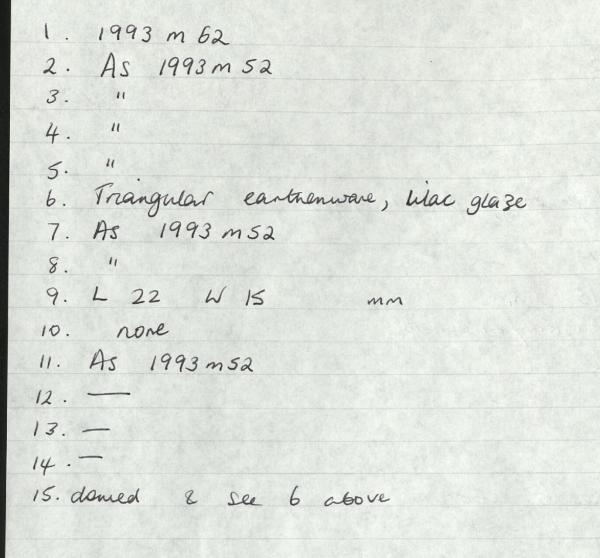 1. 1993 m 62
2. As 1993 m 52
3. "
4. "
5. "
6. Triangular earthenware, lilac glaze
7. As 1993 m 52
8. "
9. L 22 W 15 mm
10. none
11. As 1993 m 52
12. —
13. —
14. —
15. domed & see 6 above